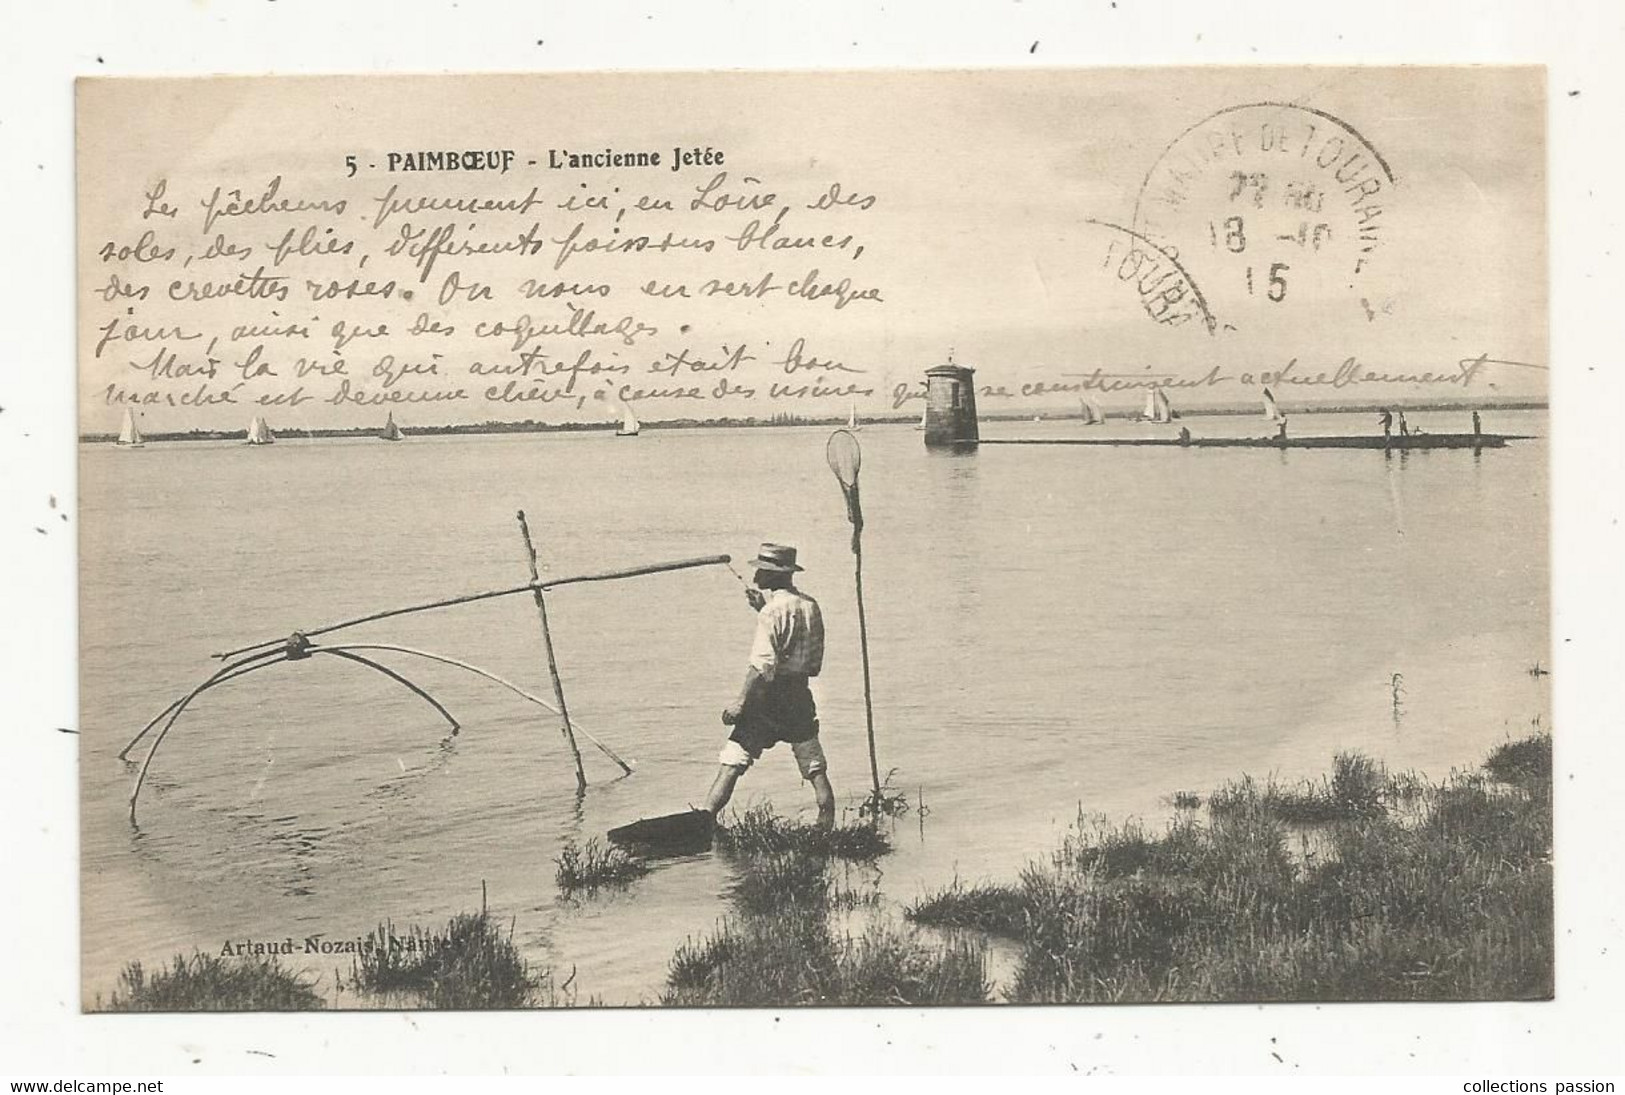 5 - PAIMBŒUF - L'ancienne Jetée
Les pêcheurs prennent ici, en Loire, des
soles, des plies, différents poissons blancs,
des crevettes roses. On nous en sert chaque
jour, ainsi que des coquillages.
Mais la vie qui autrefois était bon
marché est devenue chère, à cause des usines qui se construisent actuellement.
MAURE DE TOURAINE
18 -10
15
Artaud-Nozais, Nantes
www.delcampe.net
collections passion